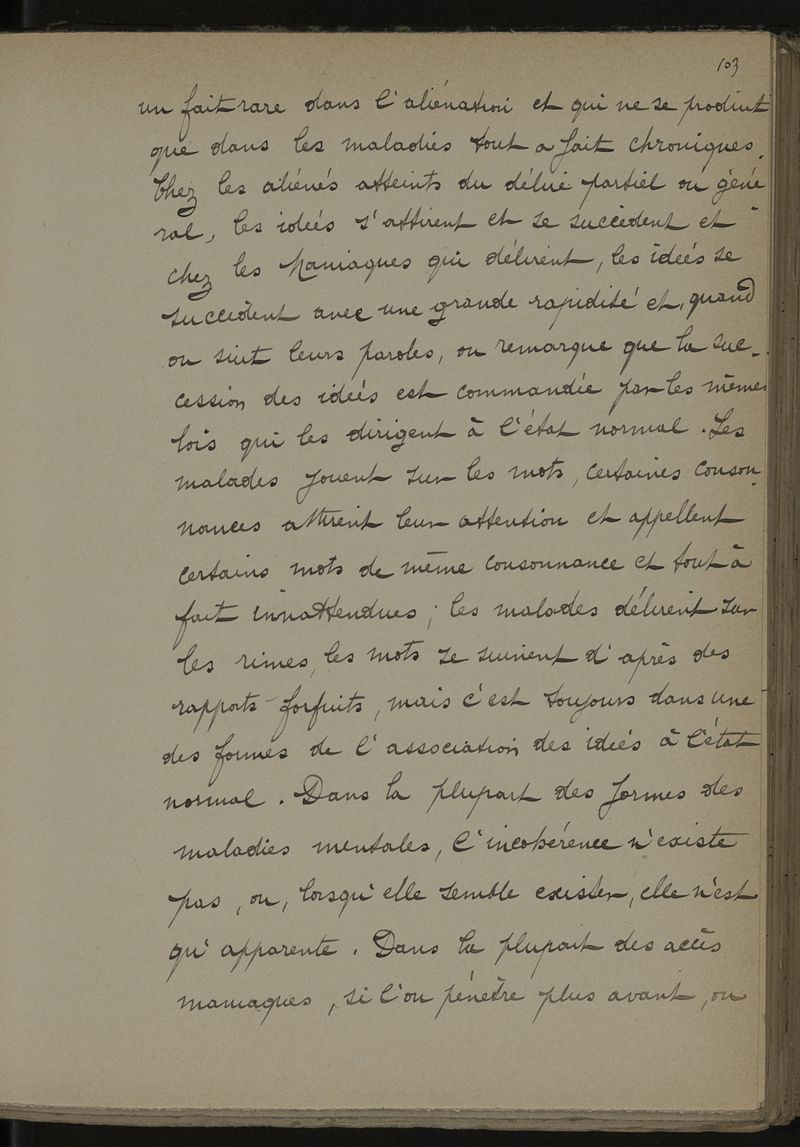 103
un fait rare dans l'aliénation et qui ne se produit
que dans les maladies tout a fait chroniques.
Chez les aliénés atteints du délire partiel ou géné
ral, les idées s'attirent et se succèdent et
chez les Maniaques qui délirent, les idées se
succèdent avec une grande rapidité et, quand
on suit leurs paroles, on remarque que la suc-
cession des idées est commandée par les mêmes
lois qui les dirigent à l'état normal. Les
malades jouent sur les mots, certaines conson-
nances attirent leur attention et appellent
certains mots de même consonnance et tout à
fait innattendues; les malades délirent sur
les rimes, les mots se suivent d'après des
rapports forfuits, mais c'est toujours dans une
des formes de l'association des idées à l'état
normal. Dans la plupart des formes des
maladies mentales, l'incohérence n'existe
pas, ou, lorsqu'elle semble exister, elle n'est
qu'apparente. Dans la plupart des accès
maniaques, si l'on pénètre plus avant, on